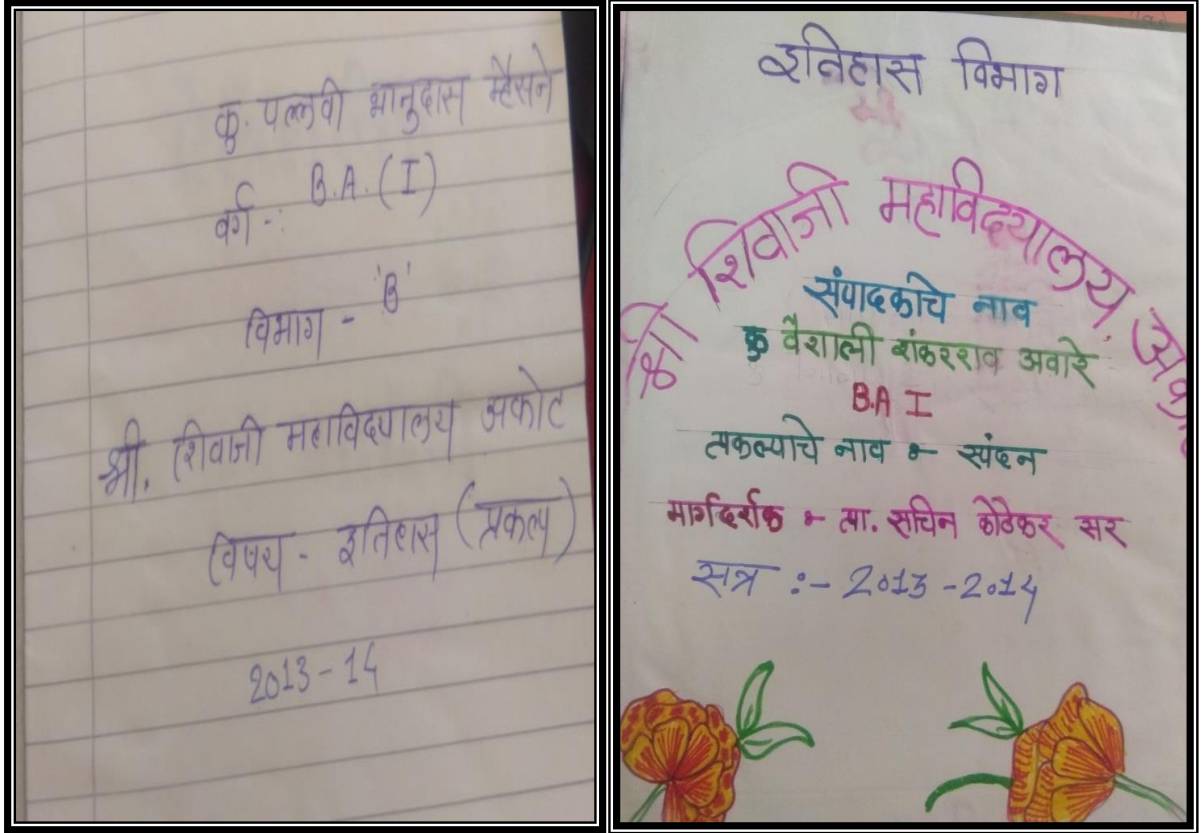 कु. पल्लवी भानुदास म्हैसने
वर्ग -: B.A. (I)
विभाग - 'B'
श्री. शिवाजी महाविद्यालय अकोट
विषय - इतिहास (प्रकल्प)
2013-14
इतिहास विभाग
श्री शिवाजी महाविद्यालय, अकोट
संपादकाचे नाव
कु वैशाली शंकरराव अवारे
B.A I
प्रकल्पाचे नाव :- स्पंदन
मार्गदर्शक :- प्रा. सचिन कोठेकर सर
सत्र :- 2013-2014